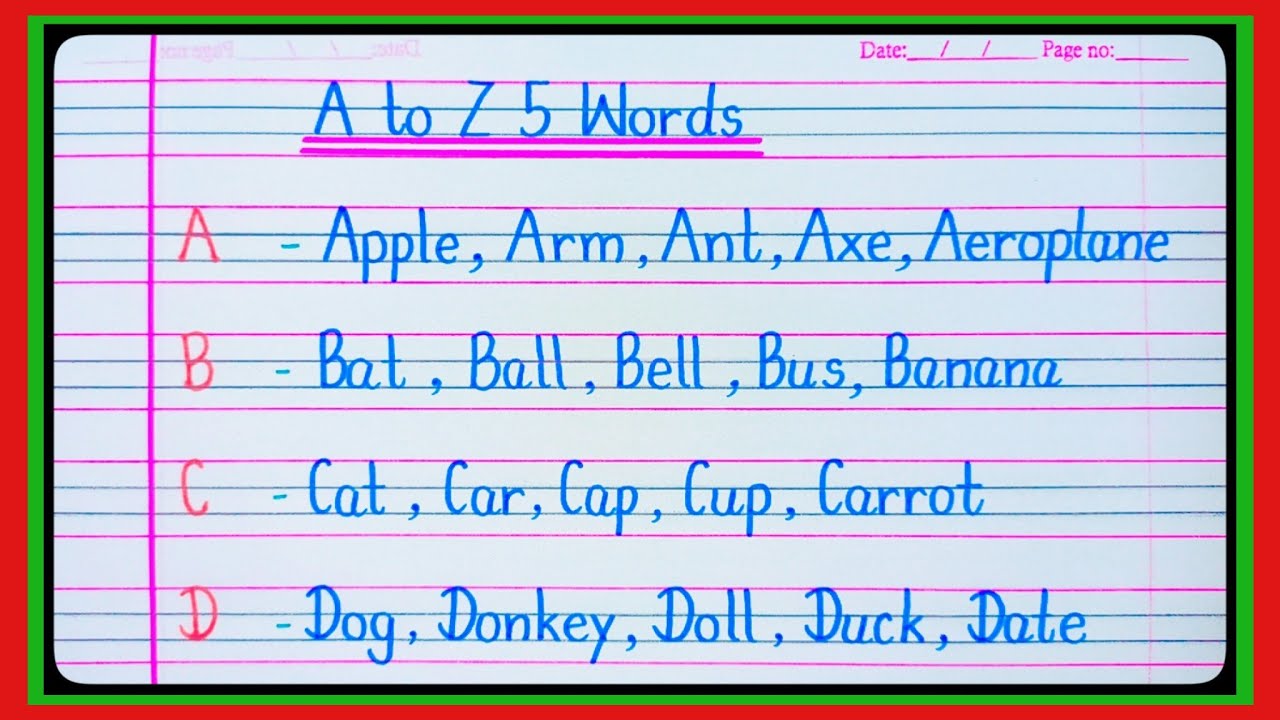 Date: / / Page no:
A to Z 5 Words
A - Apple, Arm, Ant, Axe, Aeroplane
B - Bat, Ball, Bell, Bus, Banana
C - Cat, Car, Cap, Cup, Carrot
D - Dog, Donkey, Doll, Duck, Date